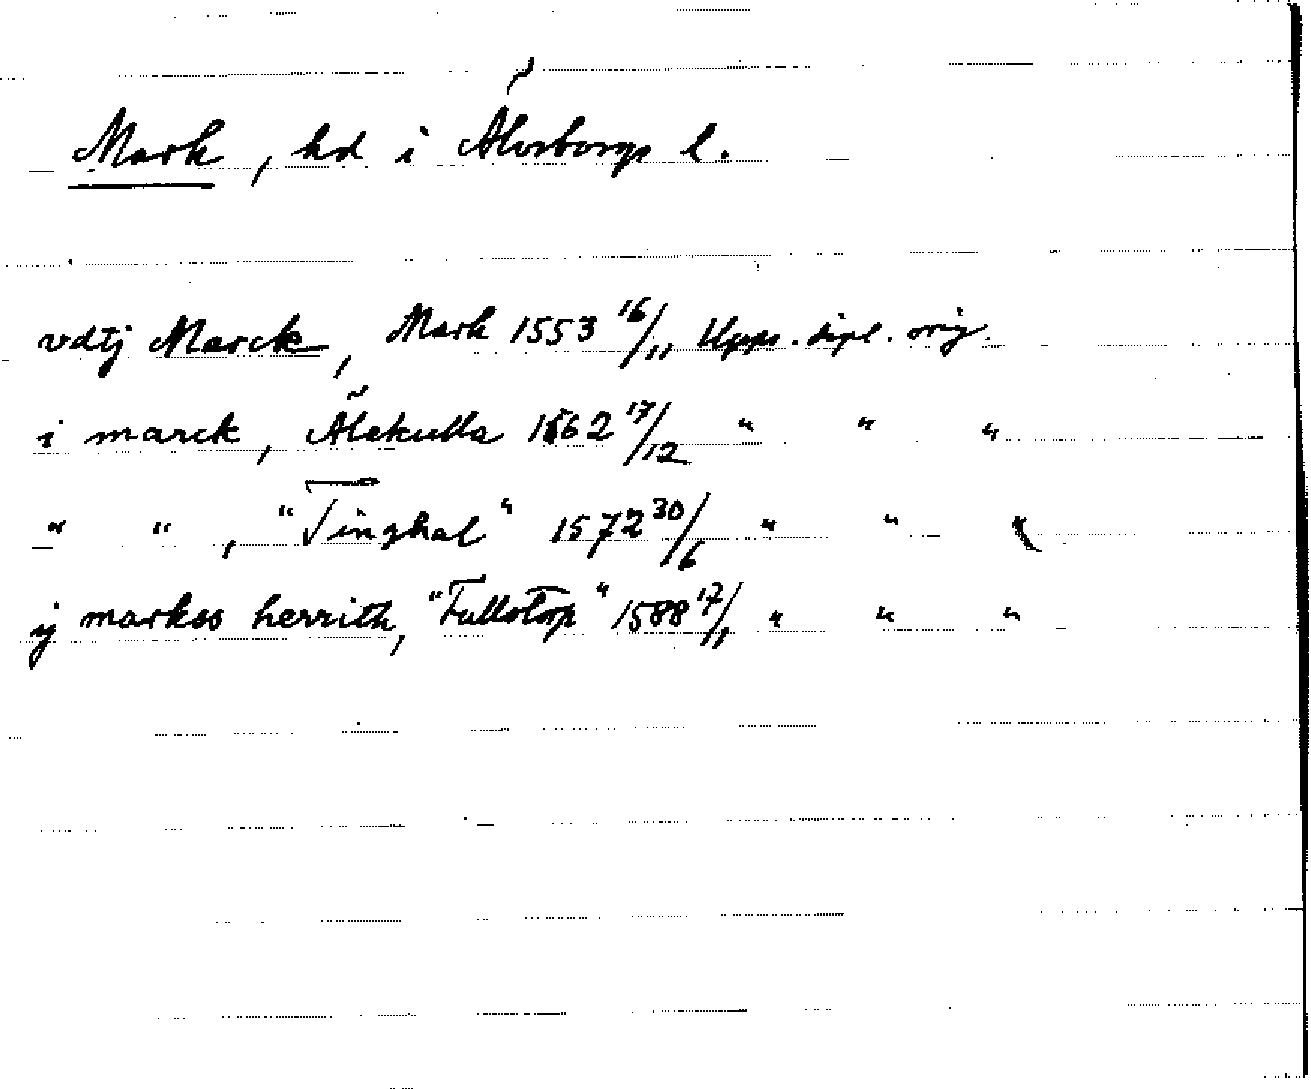 Mark, hd i Älvsborgs l.
vdtj Marck, Mark 1553 16/11 Upps. dipl. orig.
i marck, Älekulla 1562 17/12 " " "
" ", "Tinghal" 1572 30/6 " " "
ij markss herrith, "Fullotorp" 1588 17/11 " " "